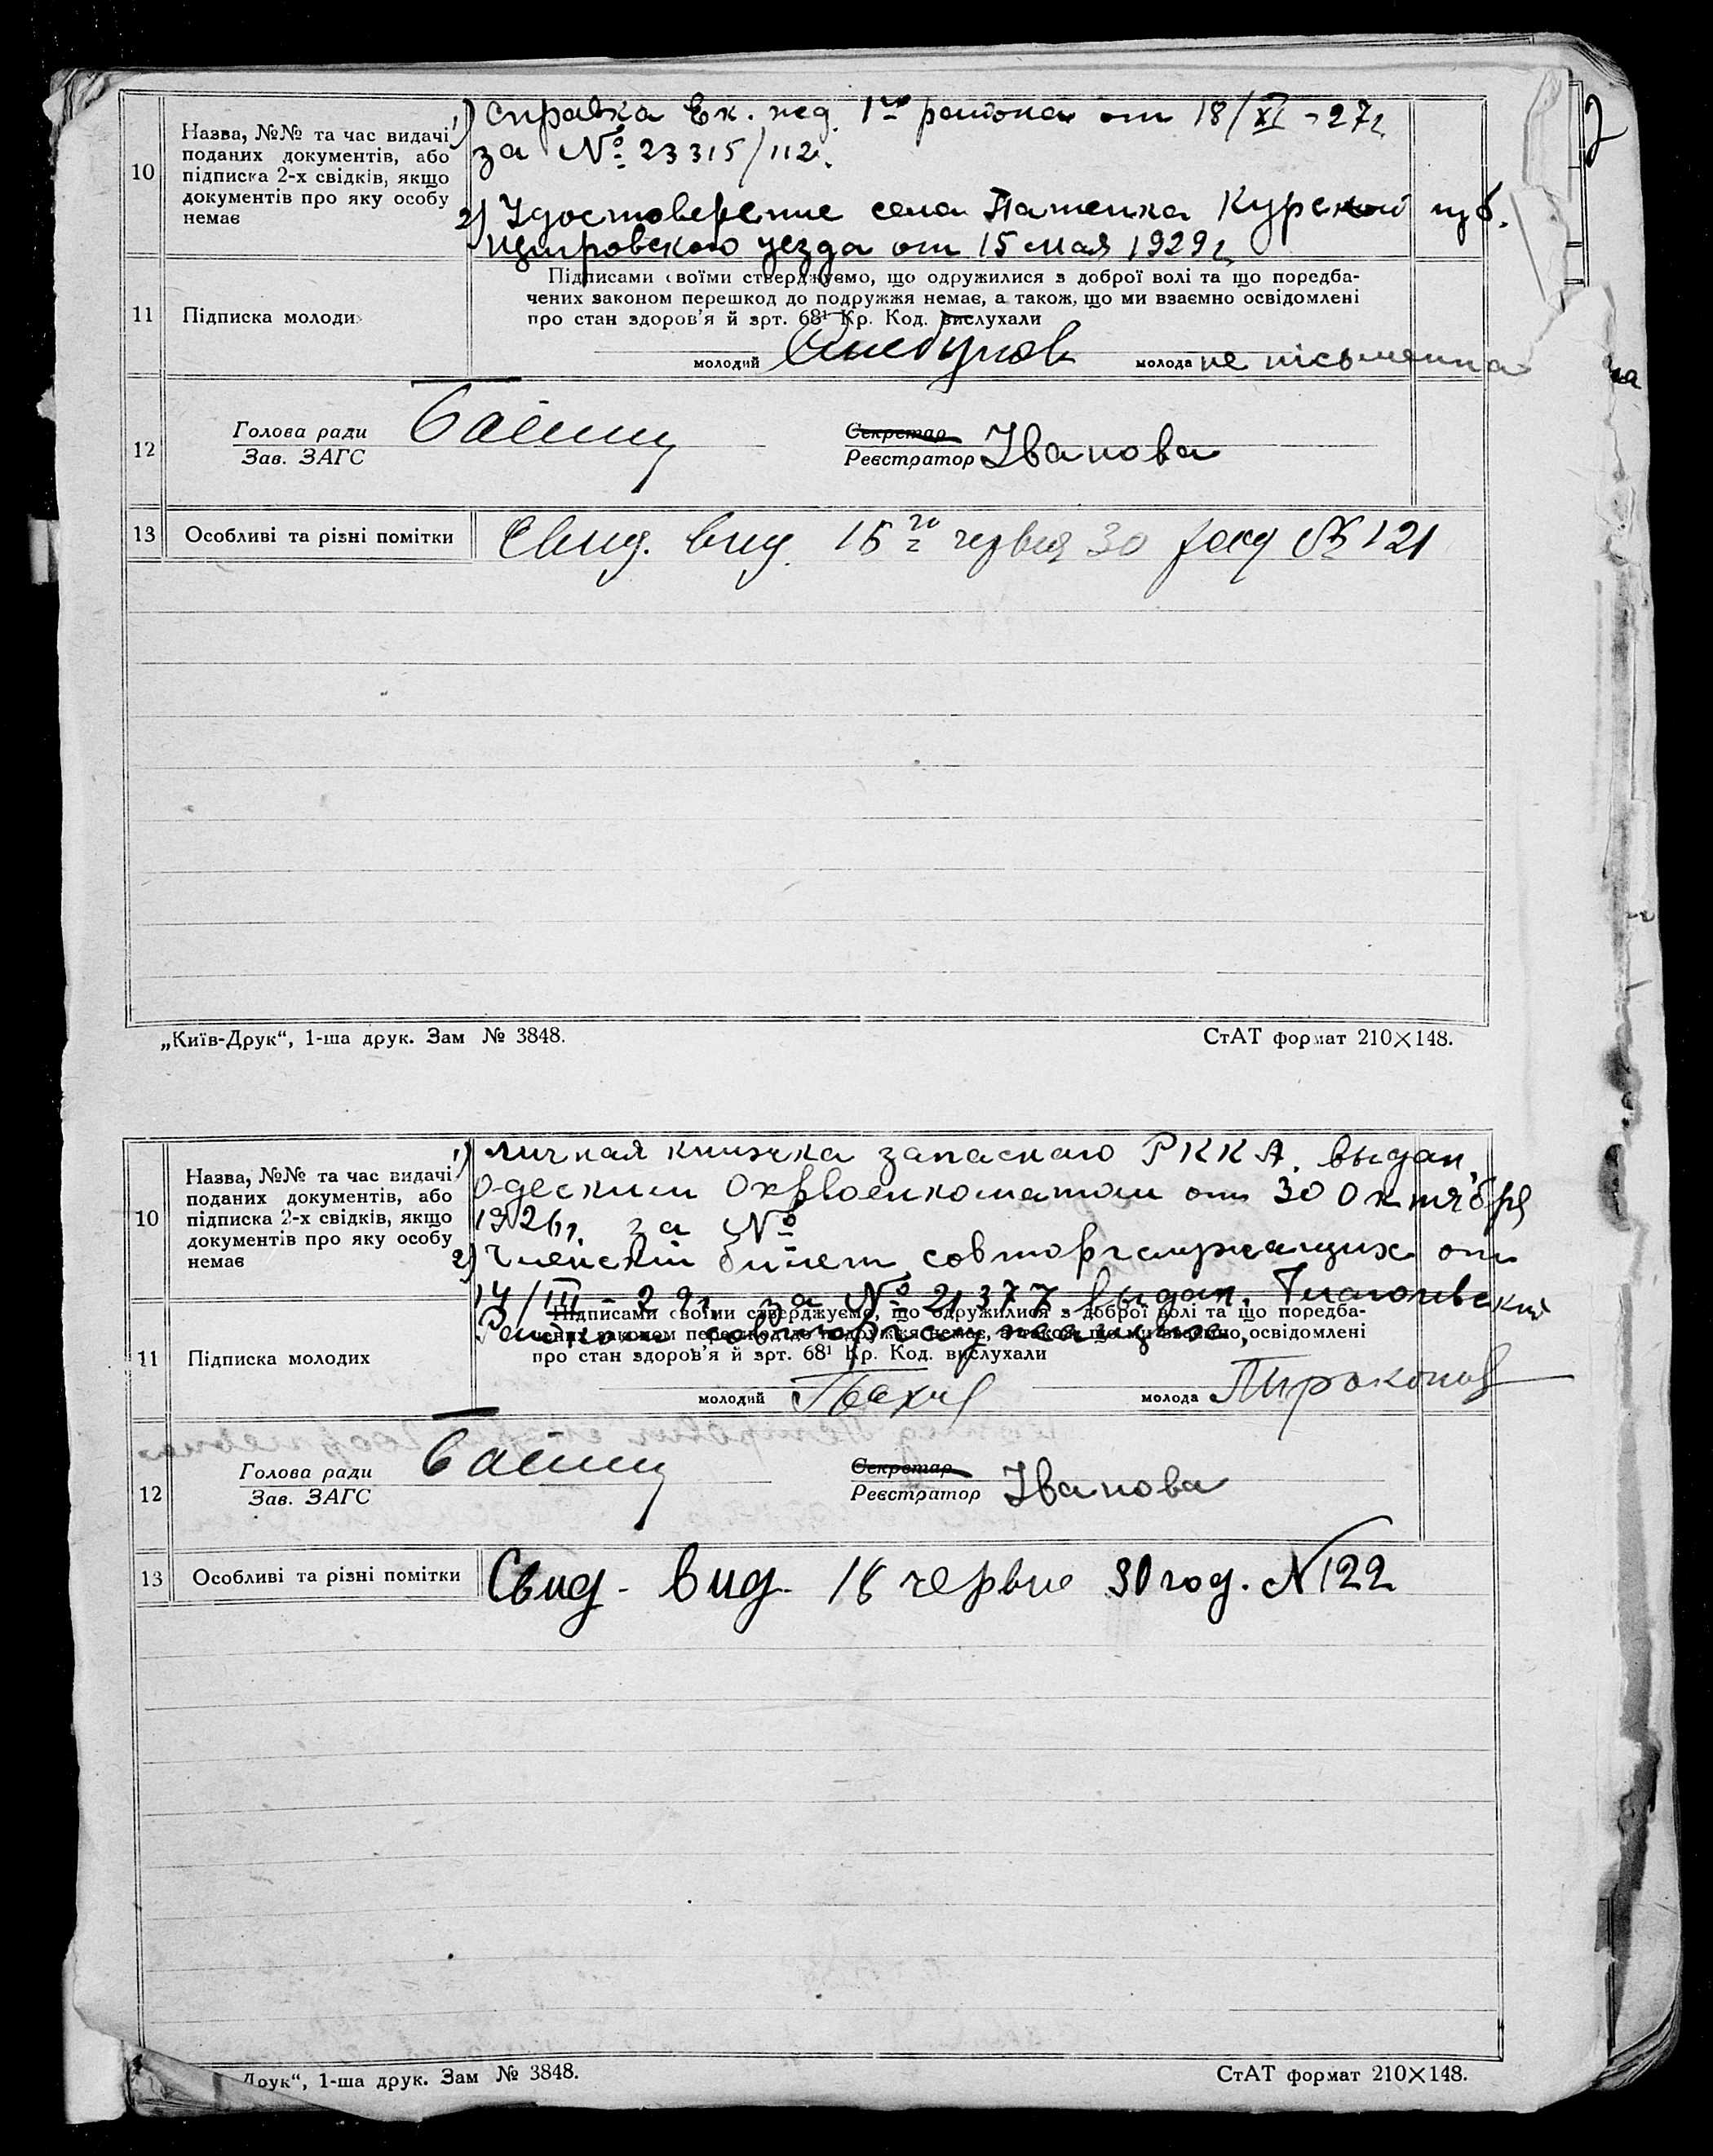 10
Назва, №№ та час видачі
поданих документів, або
підписка 2-х свідків, якщо
документів про яку особу
немає
1) Справка Ек. нед. 1го района от 18/XI - 27г.
за № 23315/112.
2) Удостоверение села Пашенка Курской губ.
Щигровского уезда от 15 мая 1929г.
11
Підписка молоди
Підписами своїми стверджуємо, що одружилися з доброї волі та що поредба-
чених законом перешкод до подружжя немає, а також, що ми взаємно освідомлені
про стан здоров'я й зрт. 68¹ Кр. Код. вислухали
молодий
молода не письменна
12
Голова ради
Зав. ЗАГС
Секретар
Реєстратор Іванова
13
Особливі та різні помітки
Свид. вид. 16го червня 30 року № 121
„Київ-Друк“, 1-ша друк. Зам № 3848.
СтАТ формат 210×148.
10
Назва, №№ та час видачі
поданих документів, або
підписка 2-х свідків, якщо
документів про яку особу
немає
1) личная книжка запасного РККА. выдан.
Одеским Окрвоенкоматом от 30 октября
1926г. за №
2) Членский билет совторгслужащих от
14/III - 29г. за № 21377 выдан.
совторгслужащих
11
Підписка молодих
Підписами своїми стверджуємо, що одружилися з доброї волі та що поредба-
чених законом перешкод до подружжя немає, а також, що ми взаємно, освідомлені
про стан здоров'я й зрт. 68¹ Кр. Код. вислухали
молодий
молода
12
Голова ради
Зав. ЗАГС
Секретар
Реєстратор Іванова
13
Особливі та різні помітки
Свид. вид. 16 червня 30 год. № 122
Друк“, 1-ша друк. Зам № 3848.
СтАТ формат 210×148.